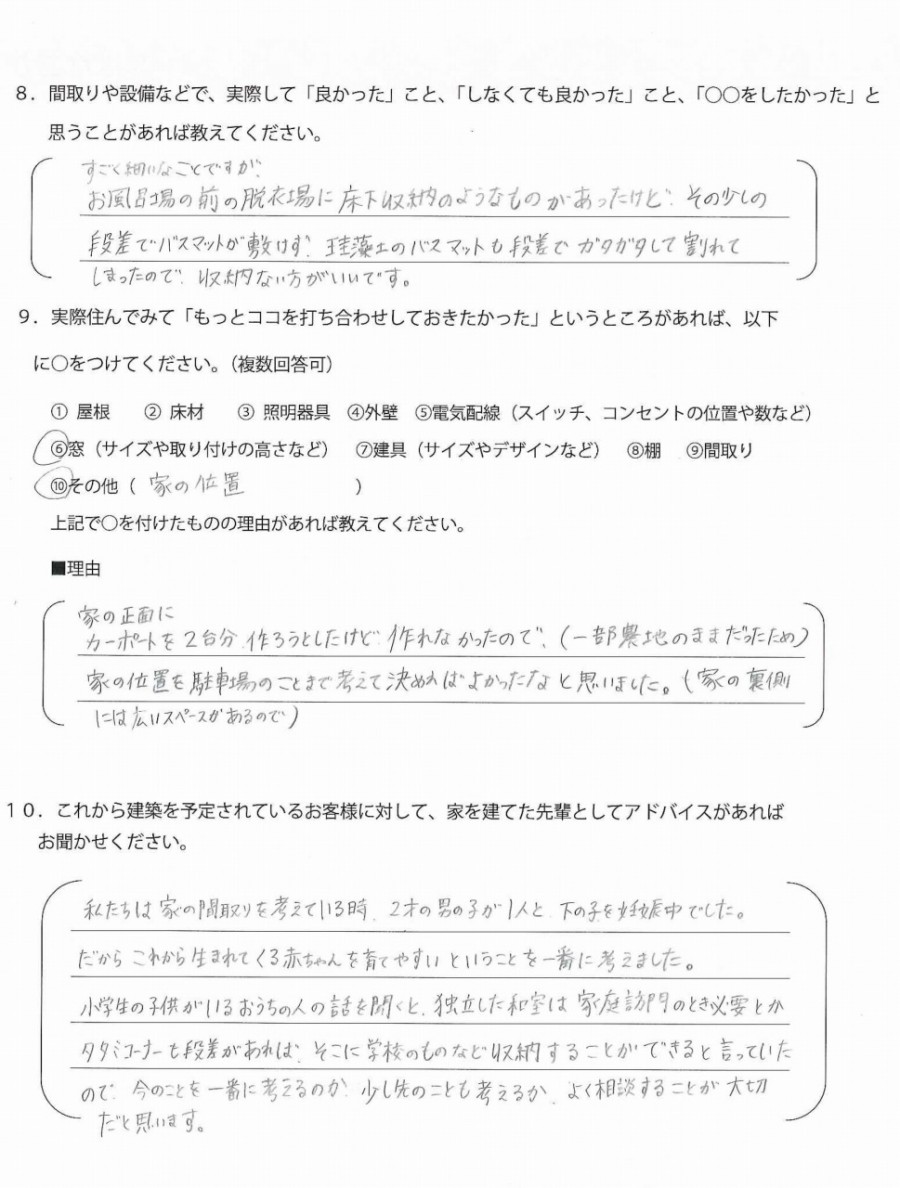 ８．間取りや設備などで、実際して「良かった」こと、「しなくても良かった」こと、「〇〇をしたかった」と
思うことがあれば教えてください。
すごく細いなことですが、
お風呂場の前の脱衣場に床下収納のようなものがあったけど、その少しの
段差でバスマットが敷けず、珪藻土のバスマットも段差でガタガタして割れて
しまったので、収納ない方がいいです。
９．実際住んでみて「もっとココを打ち合わせしておきたかった」というところがあれば、以下
に〇をつけてください。（複数回答可）
① 屋根　② 床材　③ 照明器具　④外壁　⑤電気配線（スイッチ、コンセントの位置や数など）
⑥窓（サイズや取り付けの高さなど）　⑦建具（サイズやデザインなど）　⑧棚　⑨間取り
⑩その他（ 家の位置 ）
上記で〇を付けたものの理由があれば教えてください。
■理由
家の正面に
カーポートを２台分、作ろうとしたけど、作れなかったので、（一部農地のままだったため）
家の位置を駐車場のことまで考えて決めればよかったなと思いました。（家の裏側
には広いスペースがあるので）
１０．これから建築を予定されているお客様に対して、家を建てた先輩としてアドバイスがあれば
お聞かせください。
私たちは家の間取りを考えている時、２才の男の子が１人と、下の子を妊娠中でした。
だからこれから生まれてくる赤ちゃんを育てやすいということを一番に考えました。
小学生の子供がいるおうちの人の話を聞くと、独立した和室は家庭訪問のとき必要とか
タタミコーナーも段差があれば、そこに学校のものなど収納することができると言っていた
ので、今のことを一番に考えるのか、少し先のことも考えるか、よく相談することが大切
だと思います。